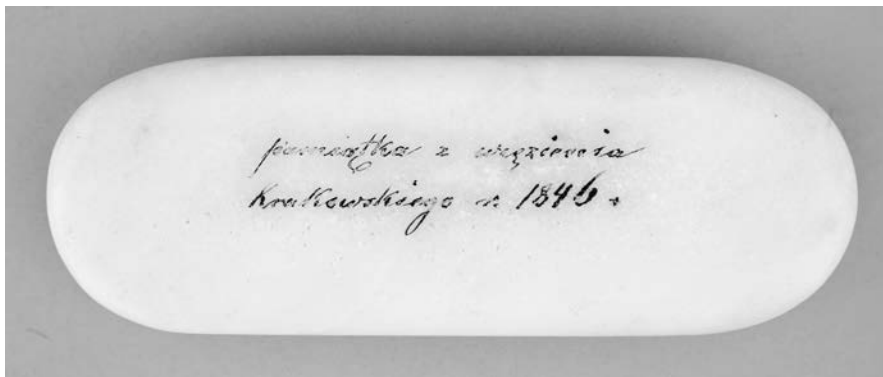 pamiątka z więzienia
Krakowskiego r. 1846.